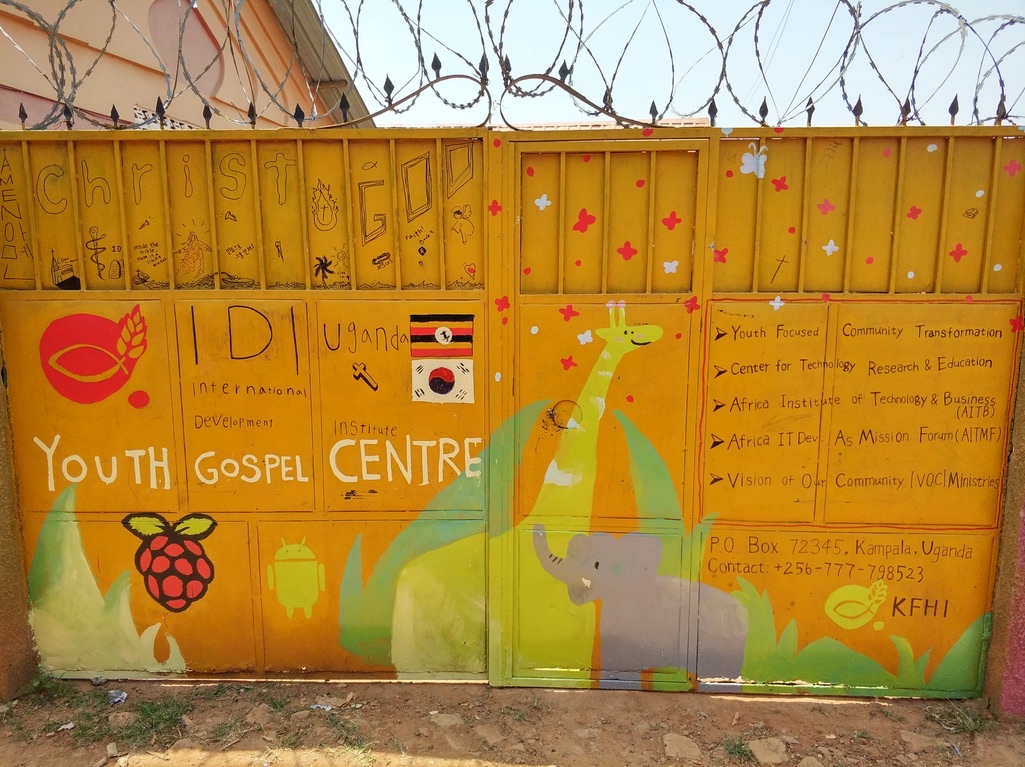 AMEN
Christ
GOD
10
IDI
International
Development
Institute
Uganda
YOUTH GOSPEL CENTRE
Youth Focused Community Transformation
Center for Technology Research & Education
Africa Institute of Technology & Business
(AITB)
Africa IT Dev. As Mission Forum (AITMF)
Vision of Our Community |VOC| Ministries
P.O. Box 72345, Kampala, Uganda
Contact: +256-777-798523
KFHI